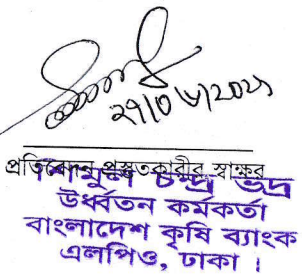 ২৭/০৬/২০২১
প্রতিবেদন প্রস্তুতকারীর স্বাক্ষর
চন্দ্র ভদ্র
উর্ধ্বতন কর্মকর্তা
বাংলাদেশ কৃষি ব্যাংক
এলপিও, ঢাকা ।